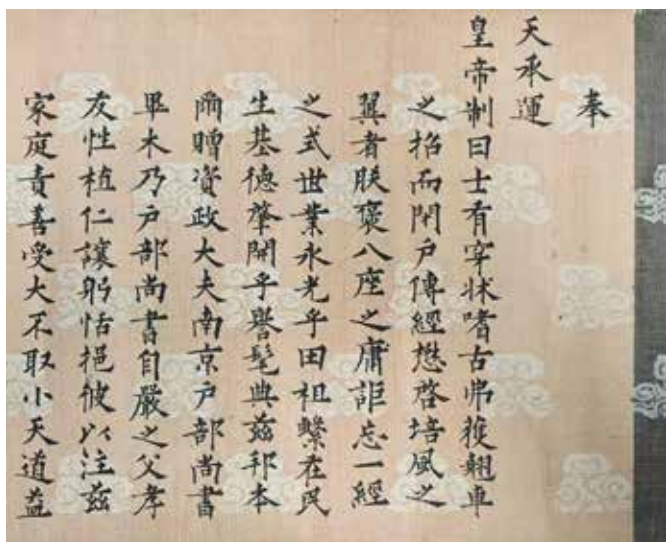 奉
天承運
皇帝制曰士有穿牀嗜古弗獲翹車
之招而閉戶傳經懋啓培風之
翼者朕褒八座之庸詎忘一經
之式世業永光乎田祖繫在民
生基德肇開乎譽髦典茲邦本
爾贈資政大夫南京戶部尚書
畢木乃戶部尚書自嚴之父孝
友性植仁讓躬恬挹彼以注茲
家庭責善受大不取小天道益